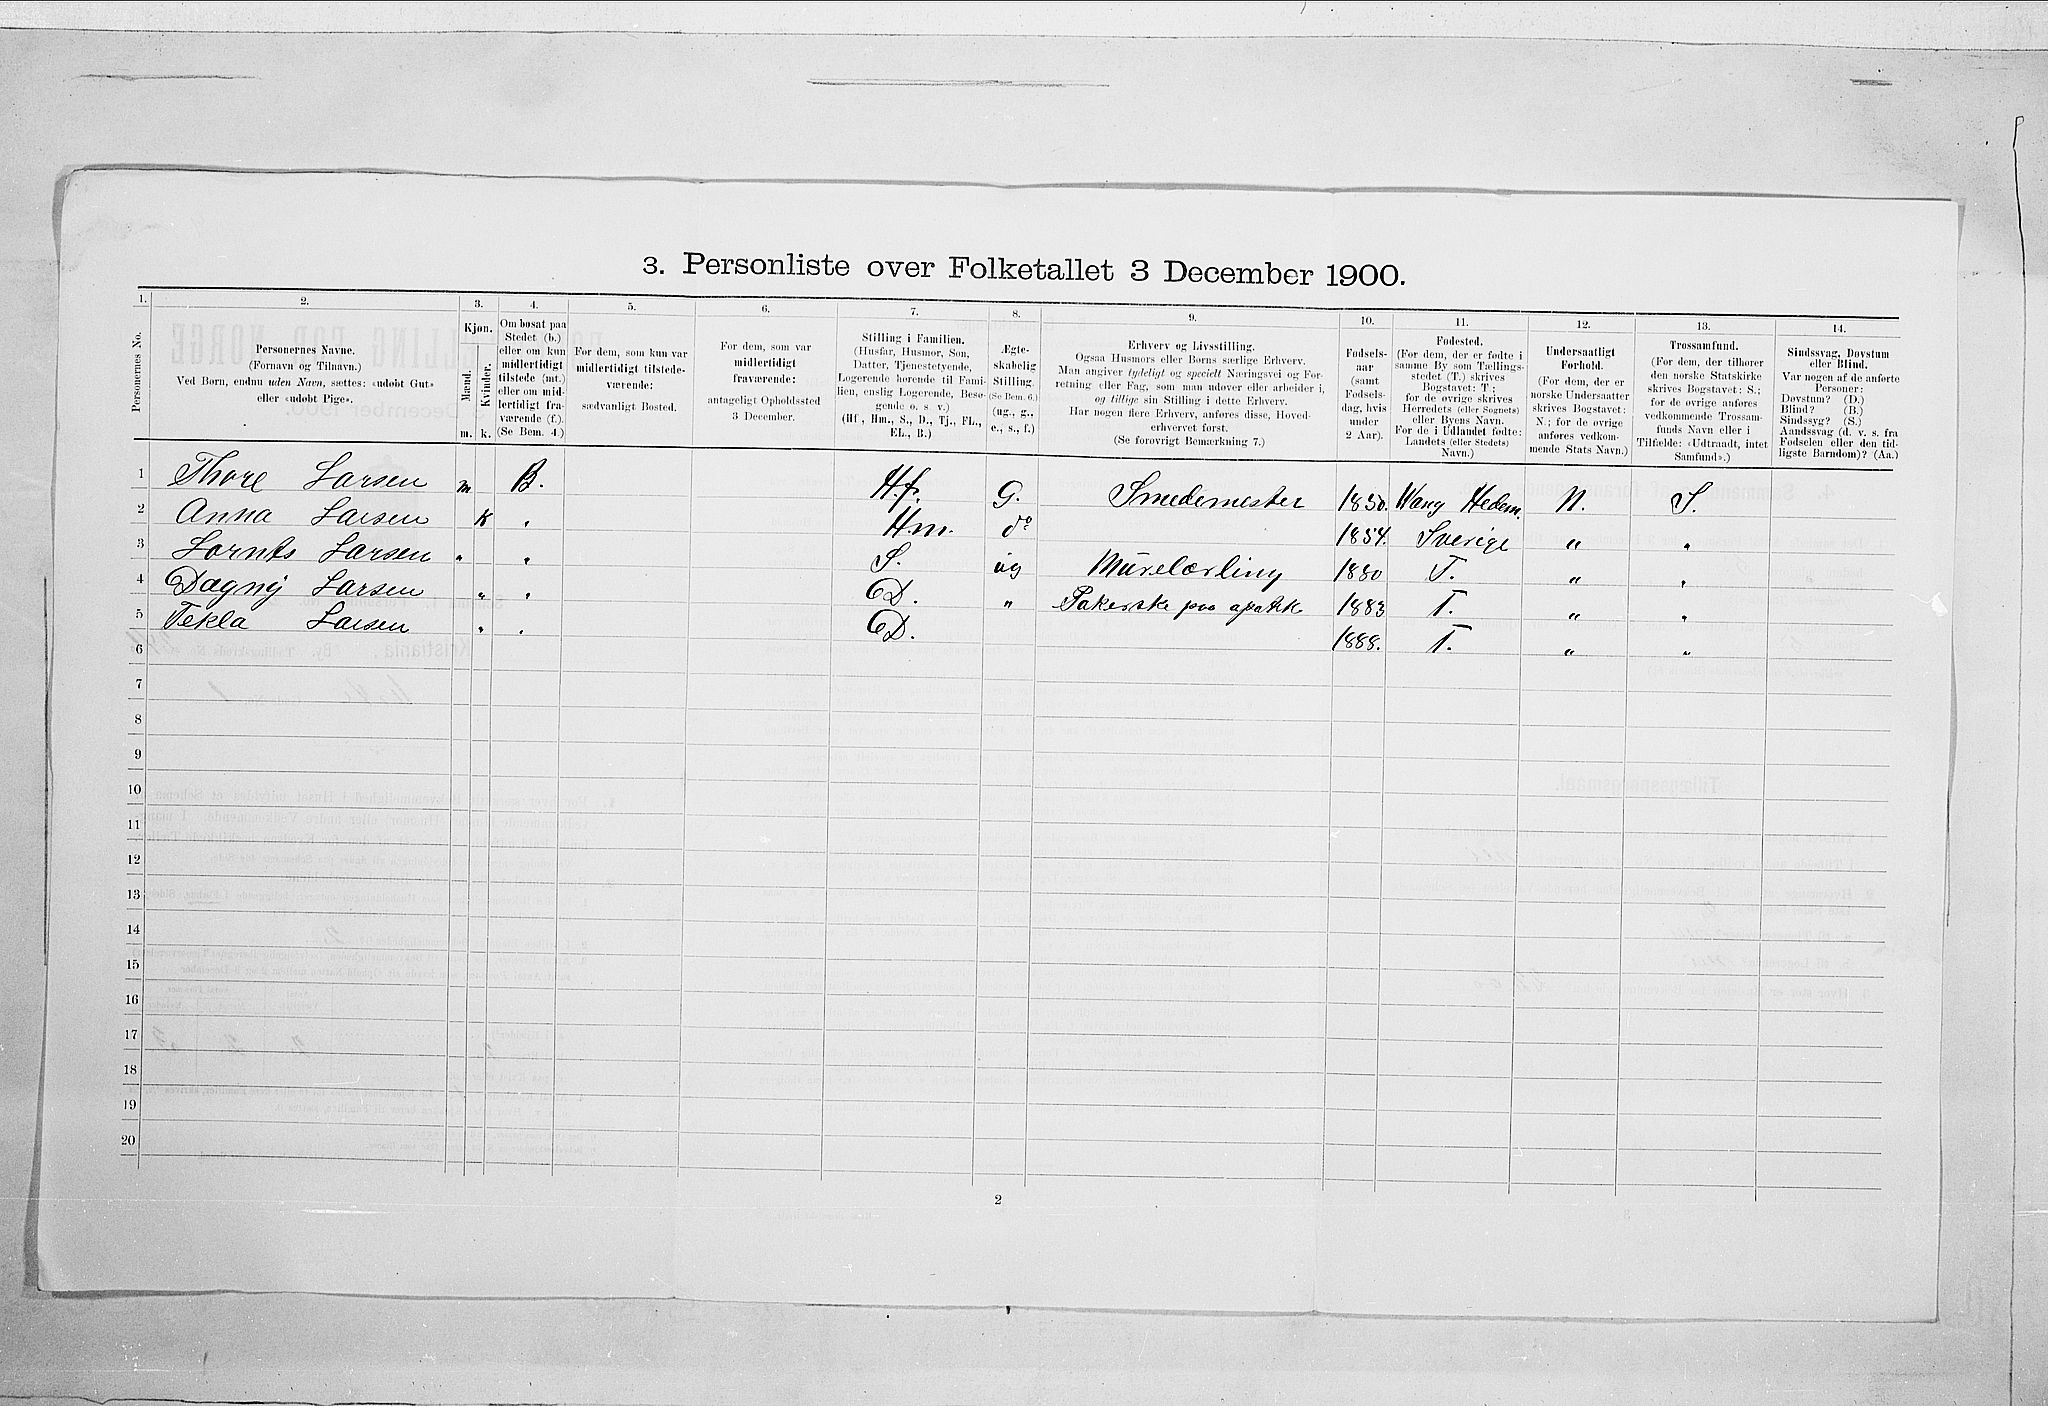 3. Personliste over Folketallet 3 December 1900.
1. 2. 3. 4. 5. 6. 7. 8. 9. 10. 11. 12. 13. 14.
Personernes No.
Personernes Navne.
(Fornavn og Tilnavn.)
Ved Børn, endnu uden Navn, sættes: «udøbt Gut»
eller «udøbt Pige».
Kjøn.
Mænd.
Kvinder.
m. k.
Om bosat paa
Stedet (b.)
eller om kun
midlertidigt
tilstede (mt.)
eller om mid-
lertidigt fra-
værende (f.).
(Se Bem. 4.)
For dem, som kun var
midlertidigt tilstede-
værende:
sædvanligt Bosted.
For dem, som var
midlertidigt
fraværende:
antageligt Opholdssted
3 December.
Stilling i Familien.
(Husfar, Husmor, Søn,
Datter, Tjenestetyende,
Logerende hørende til Fami-
lien, enslig Logerende, Besø-
gende o. s. v.)
(Hf., Hm., S., D., Tj., FL.,
EL., B.)
Ægte-
skabelig
Stilling.
(Se Bem. 6.)
(ug., g.,
e., s., f.)
Erhverv og Livsstilling.
Ogsaa Husmors eller Børns særlige Erhverv.
Man angiver tydeligt og specielt Næringsvei og For-
retning eller Fag, som man udøver eller arbeider i,
og tillige sin Stilling i dette Erhverv.
Har nogen flere Erhverv, anføres disse, Hoved-
erhvervet først.
(Se forøvrigt Bemærkning 7.)
Fødsels-
aar
(samt
Fødsels-
dag, hvis
under
2 Aar).
Fødested.
(For dem, der er fødte i
samme By som Tællings-
stedet (T.) skrives
Bogstavet: T.;
for de øvrige skrives
Herredets (eller Sognets)
eller Byens Navn.
For de i Udlandet fødte:
Landets (eller Stedets)
Navn.)
Undersaatligt
Forhold.
(For dem, der er
norske Undersaatter
skrives Bogstavet:
N.; for de øvrige
anføres vedkom-
mende Stats Navn.)
Trossamfund.
(For dem, der tilhører
den norske Statskirke
skrives Bogstavet: S.;
for de øvrige anføres
vedkommende Trossam-
funds Navn eller i
Tilfælde: «Udtraadt, intet
Samfund».)
Sindssvag, Døvstum
eller Blind.
Var nogen af de anførte
Personer:
Døvstum? (D.)
Blind? (B.)
Sindssyg? (S.)
Aandssvag (d. v. s. fra
Fødselen eller den tid-
ligste Barndom)? (Aa.)
1 Thore Larsen m B. H.f. G. Smedemester 1850. Wang Hedem. N. S.
2 Anna Larsen K " H.m. do 1854. Sverige " "
3 Lornts Larsen " " S. ug Murelærling 1880 T. " "
4 Dagny Larsen " " D. " Pakerske paa apothk 1883 T. " "
5 Tekla Larsen " " D. 1888. T. " "
6
7
8
9
10
11
12
13
14
15
16
17
18
19
20
2